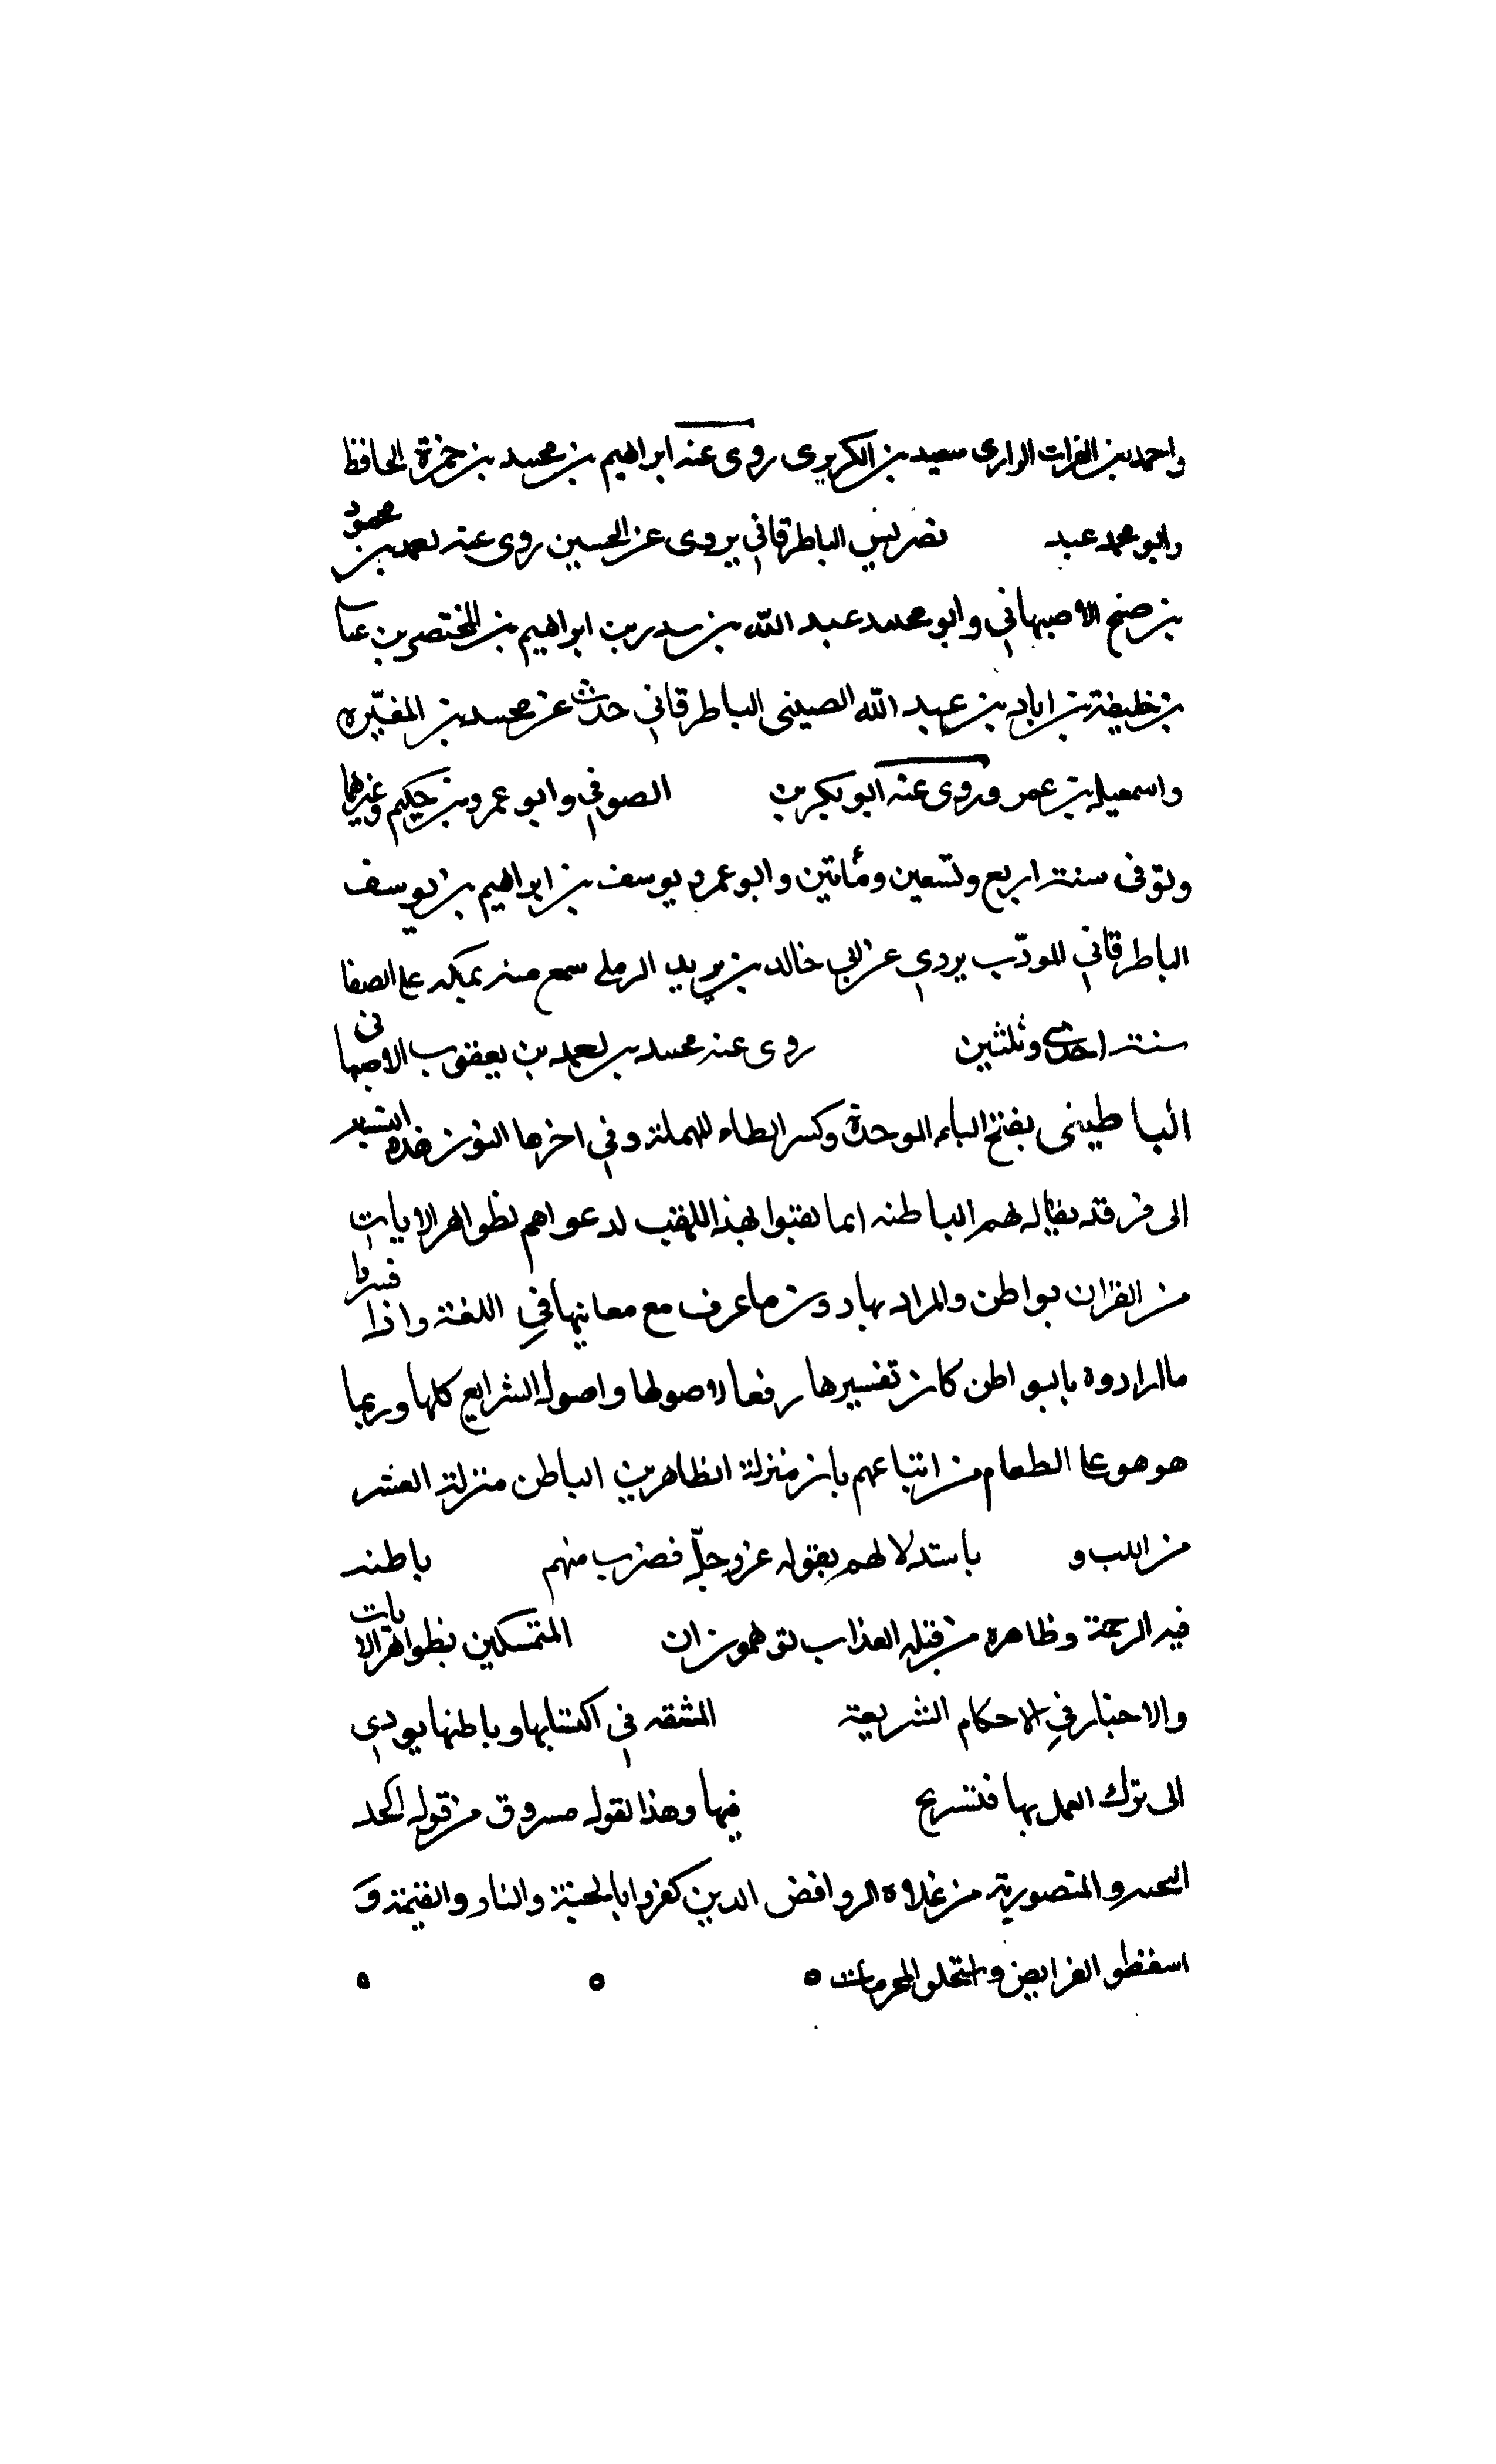 واحمد بن الفرات الرازى سعيد بن الكريرى روى عنه ابراهيم بن محمد بن حمزة الحافظ
وابو محمد عبد نصر ليس الباطرقاني يروى عن الحسين روى عنه بن محمود
بن صبح الاصبهاني وابو محمد عبد الله بن بندر بن ابراهيم بن المختصر بن عباس
بن خليفة بن اياد بن عبد الله الصينى الباطرقاني حدث عن محمد بن المغيره
واسمعيل بن عمر وروى عنه ابو بكر بن الصوفي وابو عمرو بن حكيم وغيرهما
وتوفى سنة اربع وتسعين ومأتين وابو عمرو يوسف بن ابراهيم بن يوسف
الباطرقاني المودّب يروي عن ابي خالد بن يزيد الرملى سمع منه بمكه على الصفا
سنة احدى وثلثين روى عنه محمد بن احمد بن يعقوب الاصبهانى
الباطينى بفتح الباء الموحدة وكسر الطاء المهملة وفي اخرها النون هذه النسبه
الى فرقه يقال لهم الباطنه انما لقبوا بهذا اللقب لدعواهم لظواهر الايات
من القران بواطن والمراد بها دون ما عرف مع معانيها في اللغة واذا فسروا
ما ارادوه بالبواطن كان تفسيرها رفعا لاصولها واصول الشرايع كلها وربما
هو هو عا الطعام من اتباعهم بان منزلة الظاهر بن الباطن منزلة القشر
من اللب و باستدلالهم بقوله عز وجلّ فضرب منهم باطنه
فيه الرحمة وظاهره من قبله العذاب لتوهمون ان المتمسكين بظواهر الايات
والاخبار في الاحكام الشريعة المشقه في اكتسابها وباطنها يودي
الى ترك العمل بها فتسريح فيها وهذا لقوله مسروق من قوله
والمنصورية من غلاه الروافض الدين كفروا بالجنة والنار والقيمة و
اسقطو الفرايض واستحلو المحرمات